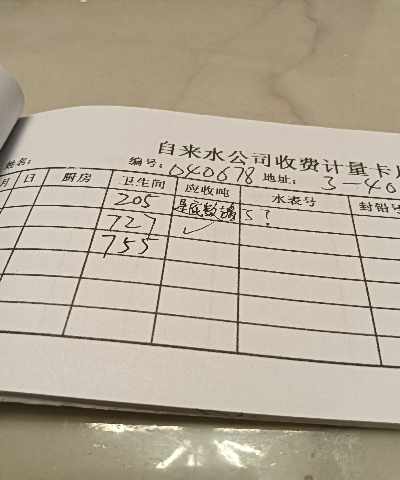 自来水公司收费计量卡片
姓名： 编号：040678 地址：3-40
月 日 厨房 卫生间 应收吨 水表号 封铅号
205 是底数吗 5？
727 ✓
755